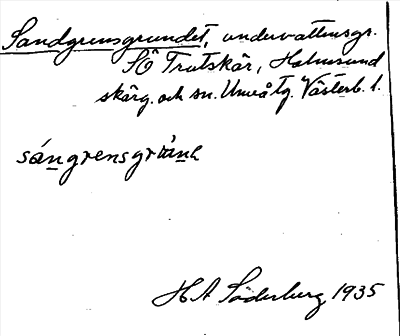 Sandgrensgrundet, undervattensgr.
SÖ Trutskär, Holmsund
skärg. och sn. Umeå tg. Västerb. l.
sángrensgrùnḁ
H A Söderberg 1935